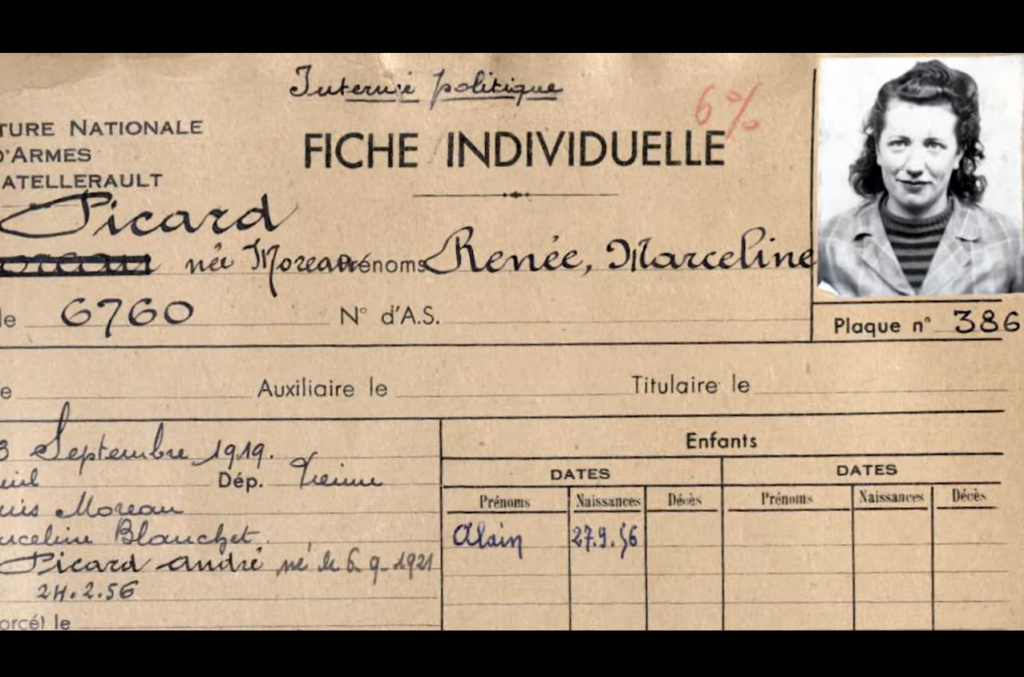 Interné politique
6%
TURE NATIONALE
D'ARMES
ATELLERAULT
FICHE INDIVIDUELLE
Picard
née Moreau Prénoms Renée, Marceline
le 6760 N° d'A.S.
Plaque n° 386
e Auxiliaire le Titulaire le
3 Septembre 1919.
euil Dép. Vienne
uis Moreau
arceline Blanchet.
Picard André né le 6.9.1921
24.2.56
orcé) le
Enfants
DATES DATES
Prénoms Naissances Décès Prénoms Naissances Décès
Alain 27.9.56